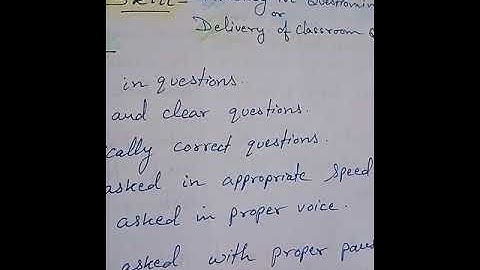 Skill -
Questioning
or
Delivery of classroom
in questions.
and clear questions.
ically correct questions.
asked in appropriate speed
asked in proper voice.
asked with proper paus